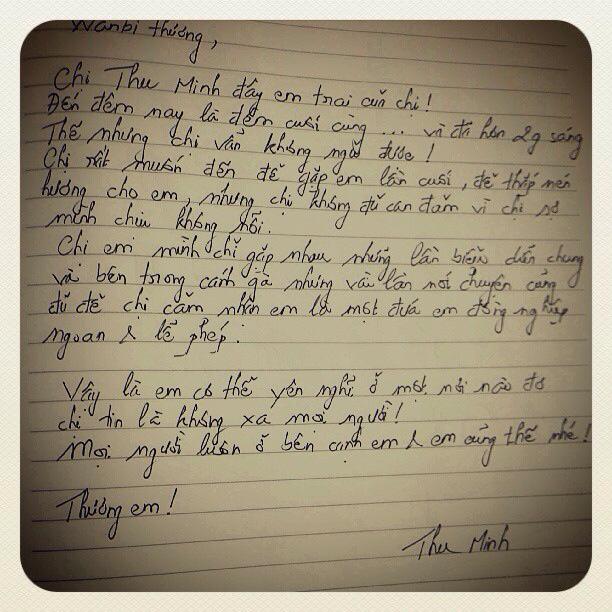 Wanbi thương,
Chị Thu Minh đây em trai của chị!
Đến đêm nay là đêm cuối cùng ... và đã hơn 2g sáng
Thế nhưng chị vẫn không ngủ được!
Chị rất muốn đến để gặp em lần cuối, để thắp nén
hương cho em, nhưng chị không đủ can đảm vì chị sợ
mình chịu không nổi.
Chị em mình chỉ gặp nhau những lần biểu diễn chung
và bên trong cánh gà nhưng vài lần nói chuyện cũng
đủ để chị cảm nhận em là một đứa em đồng nghiệp
ngoan & lễ phép.
Vậy là em có thể yên nghỉ ở một nơi nào đó
chị tin là không xa mọi người!
Mọi người luôn ở bên cạnh em & em cũng thế nhé!
Thương em!
Thu Minh